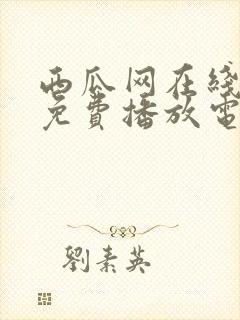 西瓜网在线
免費播放電
劉素英